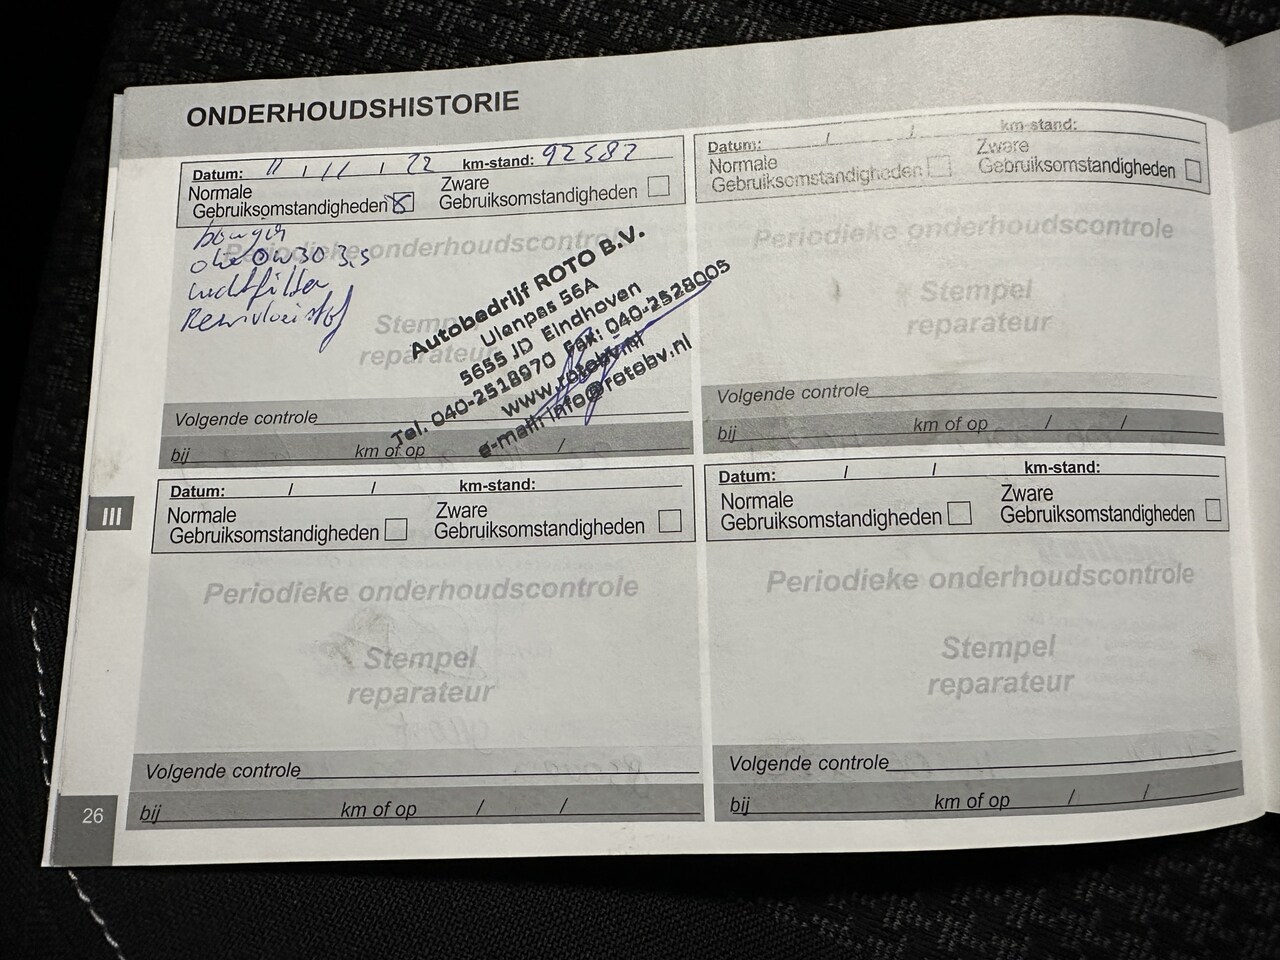 ONDERHOUDSHISTORIE
Datum: 11 / 11 / 22 km-stand: 92582
Normale
Gebruiksomstandigheden
Zware
Gebruiksomstandigheden
bougies
olie 0w30 3,5
luchtfilter
Remvloeistof
Periodieke onderhoudscontrole
Stempel
reparateur
Autobedrijf ROTO B.V.
Ulenpas 56A
5655 JD Eindhoven
Tel. 040-2518970 Fax: 040-2528005
www.rotobv.nl
e-mail: info@rotobv.nl
Volgende controle
bij km of op /
Datum: / / km-stand:
Normale
Gebruiksomstandigheden
Zware
Gebruiksomstandigheden
Periodieke onderhoudscontrole
Stempel
reparateur
Volgende controle
bij km of op / /
III
Datum: / / km-stand:
Normale
Gebruiksomstandigheden
Zware
Gebruiksomstandigheden
Periodieke onderhoudscontrole
Stempel
reparateur
Volgende controle
bij km of op / /
Datum: / / km-stand:
Normale
Gebruiksomstandigheden
Zware
Gebruiksomstandigheden
Periodieke onderhoudscontrole
Stempel
reparateur
Volgende controle
bij km of op / /
26